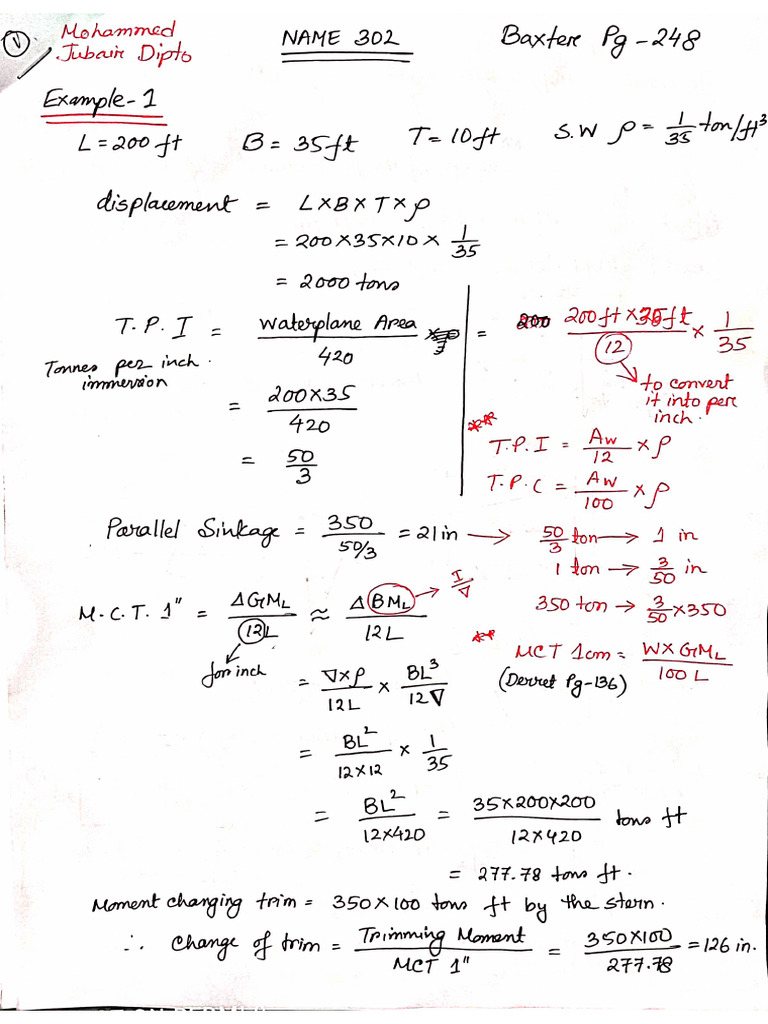 ① Mohammed Jubair Dipto
NAME 302
Baxter Pg-248
Example-1
L = 200 ft B = 35ft T = 10ft S.W ρ = 1/35 ton/ft³
displacement = L×B×T×ρ
= 200×35×10 × 1/35
= 2000 tons
T.P.I = Waterplane Area / 420
Tonnes per inch immersion
= 200×35 / 420
= 50/3
= 200ft × 35ft / 12 × 1/35
to convert it into per inch.
T.P.I = Aw/12 × ρ
T.P.C = Aw/100 × ρ
Parallel Sinkage = 350 / 50/3 = 21 in → 50/3 ton → 1 in
1 ton → 3/50 in
350 ton → 3/50 × 350
M.C.T. 1" = ΔGML / 12L ≈ ΔBML / 12L → I/∇
for inch
** MCT 1cm = W×GML / 100 L
(Derret Pg-136)
= ∇×ρ / 12L × BL³ / 12∇
= BL² / 12×12 × 1/35
= BL² / 12×420 = 35×200×200 / 12×420 tons ft
= 277.78 tons ft.
Moment changing trim = 350×100 tons ft by the stern.
∴ Change of trim = Trimming Moment / MCT 1" = 350×100 / 277.78 = 126 in.